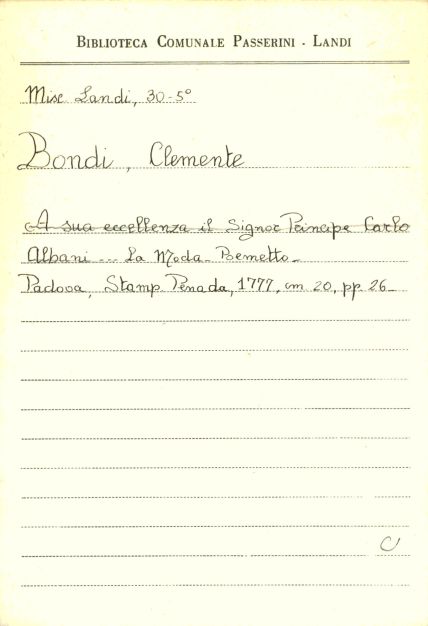 BIBLIOTECA COMUNALE PASSERINI - LANDI
Misc Landi, 30-5°
Bondi, Clemente
A sua eccellenza il Signor Principe Carlo
Albani ... La Moda - Poemetto -
Padova, Stamp Penada, 1777, cm 20, pp. 26 -
C